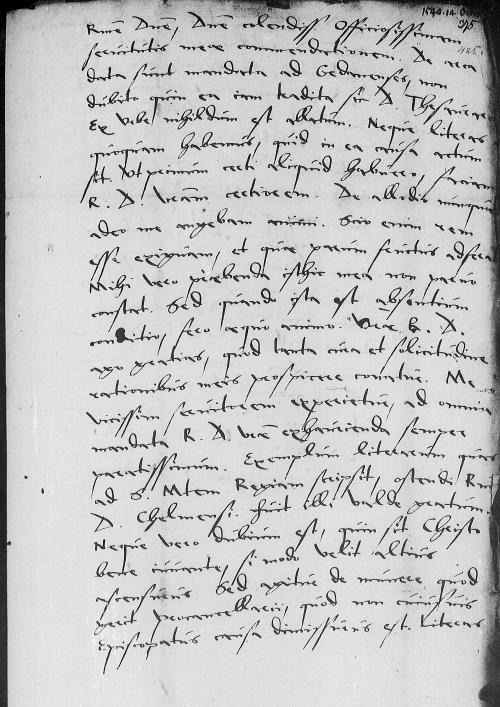 1544.14 Oct
Rme Dne, Dne colendiss. Officiosissimam
servitutis meae commendationem. De area
data sunt mandata ad Gedanenses, non
dubito quin ea iam tradita sint D. Thesaurario
Ex Urbe nihildum est allatum. Neque literas
quoquam habemus, quid in ea causa actum
sit. Ut primum certi aliquid habuero, faciam
R. D. Vram certiorem. De allodio nunquam
adeo me angebam animi. Scio enim rem
esse exiguam, et quae parum fructus adferat
Mihi vero praebenda isthic mea non parvo
constat. Sed quando ista est absentium
conditio, fero aequo animo. Vrae R. D.
ago gratias, quod tanta cura et solicitudine
rationibus meis prospicere conatur. Me
vicissim servitorem experietur, ad omnia
mandata R. D. Vrae exhaurienda semper
paratissimum. Exemplum literarum quas
ad S. Mtem Regiam scripsit, ostendi Rmo
D. Chelmensi. Fuit illi valde gratum.
Neque vero dubium est, quin sit Christo
bene iuvante, si modo velit altius
ascensurus. Sed agitur de munere quod
gerit procancellarii, quod non cuiusvis
Episcopatus causa dimissurus est. Literas